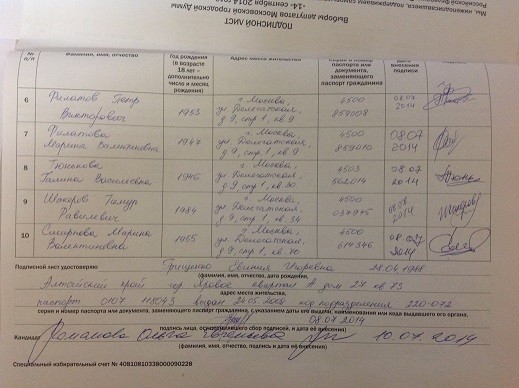 Выборы депутатов Московской городской Думы
-14- сентября 2014 года
ПОДПИСНОЙ ЛИСТ
№ п/п
Фамилия, имя, отчество
Год рождения
(в возрасте
18 лет -
дополнительно
число и месяц
рождения)
Адрес места жительства
Серия и номер
паспорта или
документа,
заменяющего
паспорт гражданина
Дата
внесения
подписи
6 Филатов Петр Викторович 1953 г. Москва, ул. Делегатская, д 9, стр 1, кв 9 4500 859008 08.07 2014
7 Филатова Марина Валентиновна 1947 г. Москва, ул. Делегатская, д 9, стр 1, кв 9 4500 859010 08.07 2014
8 Галина Васильевна 1946 г. Москва, ул. Делегатская, д 9, стр 1, кв 30 4503 562014 08.07 2014
9 Тимур Равилевич 1984 г. Москва, ул. Делегатская, д 9, стр 1, кв 34 4500 08.07 2014
10 Смирнова Марина Валентиновна 1955 г. Москва, ул. Делегатская, д 9, стр 1, кв 4500 614346 08.07 2014
Подписной лист удостоверяю Гриценко Евгения Игоревна 28.04.1988
(фамилия, имя, отчество, дата рождения,
Алтайский край гор Яровое квартал А дом 27 кв 73
адрес места жительства,
паспорт 0107 115043 выдан 24.05.2008 код подразделения 220-072
серия и номер паспорта или документа, заменяющего паспорт гражданина, с указанием даты его выдачи, наименования или кода выдавшего его органа,
08.07.2014
подпись лица, осуществлявшего сбор подписей, и дата её внесения)
Кандидат Романова Ольга Евгеньевна 10.07.2014
(фамилия, имя, отчество, подпись и дата её внесения)
Специальный избирательный счет № 40810810338000090228